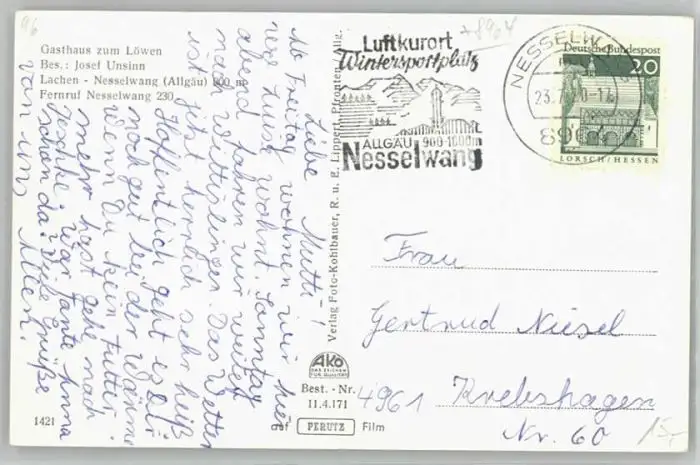 96
+8964
Gasthaus zum Löwen
Bes.: Josef Unsinn
Lachen - Nesselwang (Allgäu) 900 m
Fernruf Nesselwang 230
Liebe Mutti!
Ab Freitag wohnen wir hier
Luise wohnt. Sonntag
abend fahren wir weiter
nach Wittislingen. Das Wetter
ist jetzt herrlich sehr heiß
Hoffentlich geht es Dir
noch gut bei der Wärme
wenn Du kein Futter
mehr hast gehe nach
Jeschke. War Tante Anna
schon da? Viele Grüße
von uns Allen.
1421
Verlag Foto-Kohlbauer, R. u. E. Lippert, Pfronten/Allg.
AKO
DAS ZEICHEN
FÜR QUALITÄT
Best.-Nr.
11.4.171
auf PERUTZ Film
Luftkurort
Wintersportplatz
ALLGÄU 900-1600m
Nesselwang
NESSELW
23.7.
896
Deutsche Bundespost
20
LORSCH/HESSEN
Frau
Gertrud Niesel
4961 Krebshagen
Nr. 60
15,-